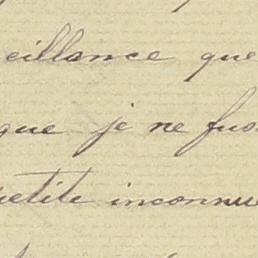 eillance que
que je ne fus
petite inconnue